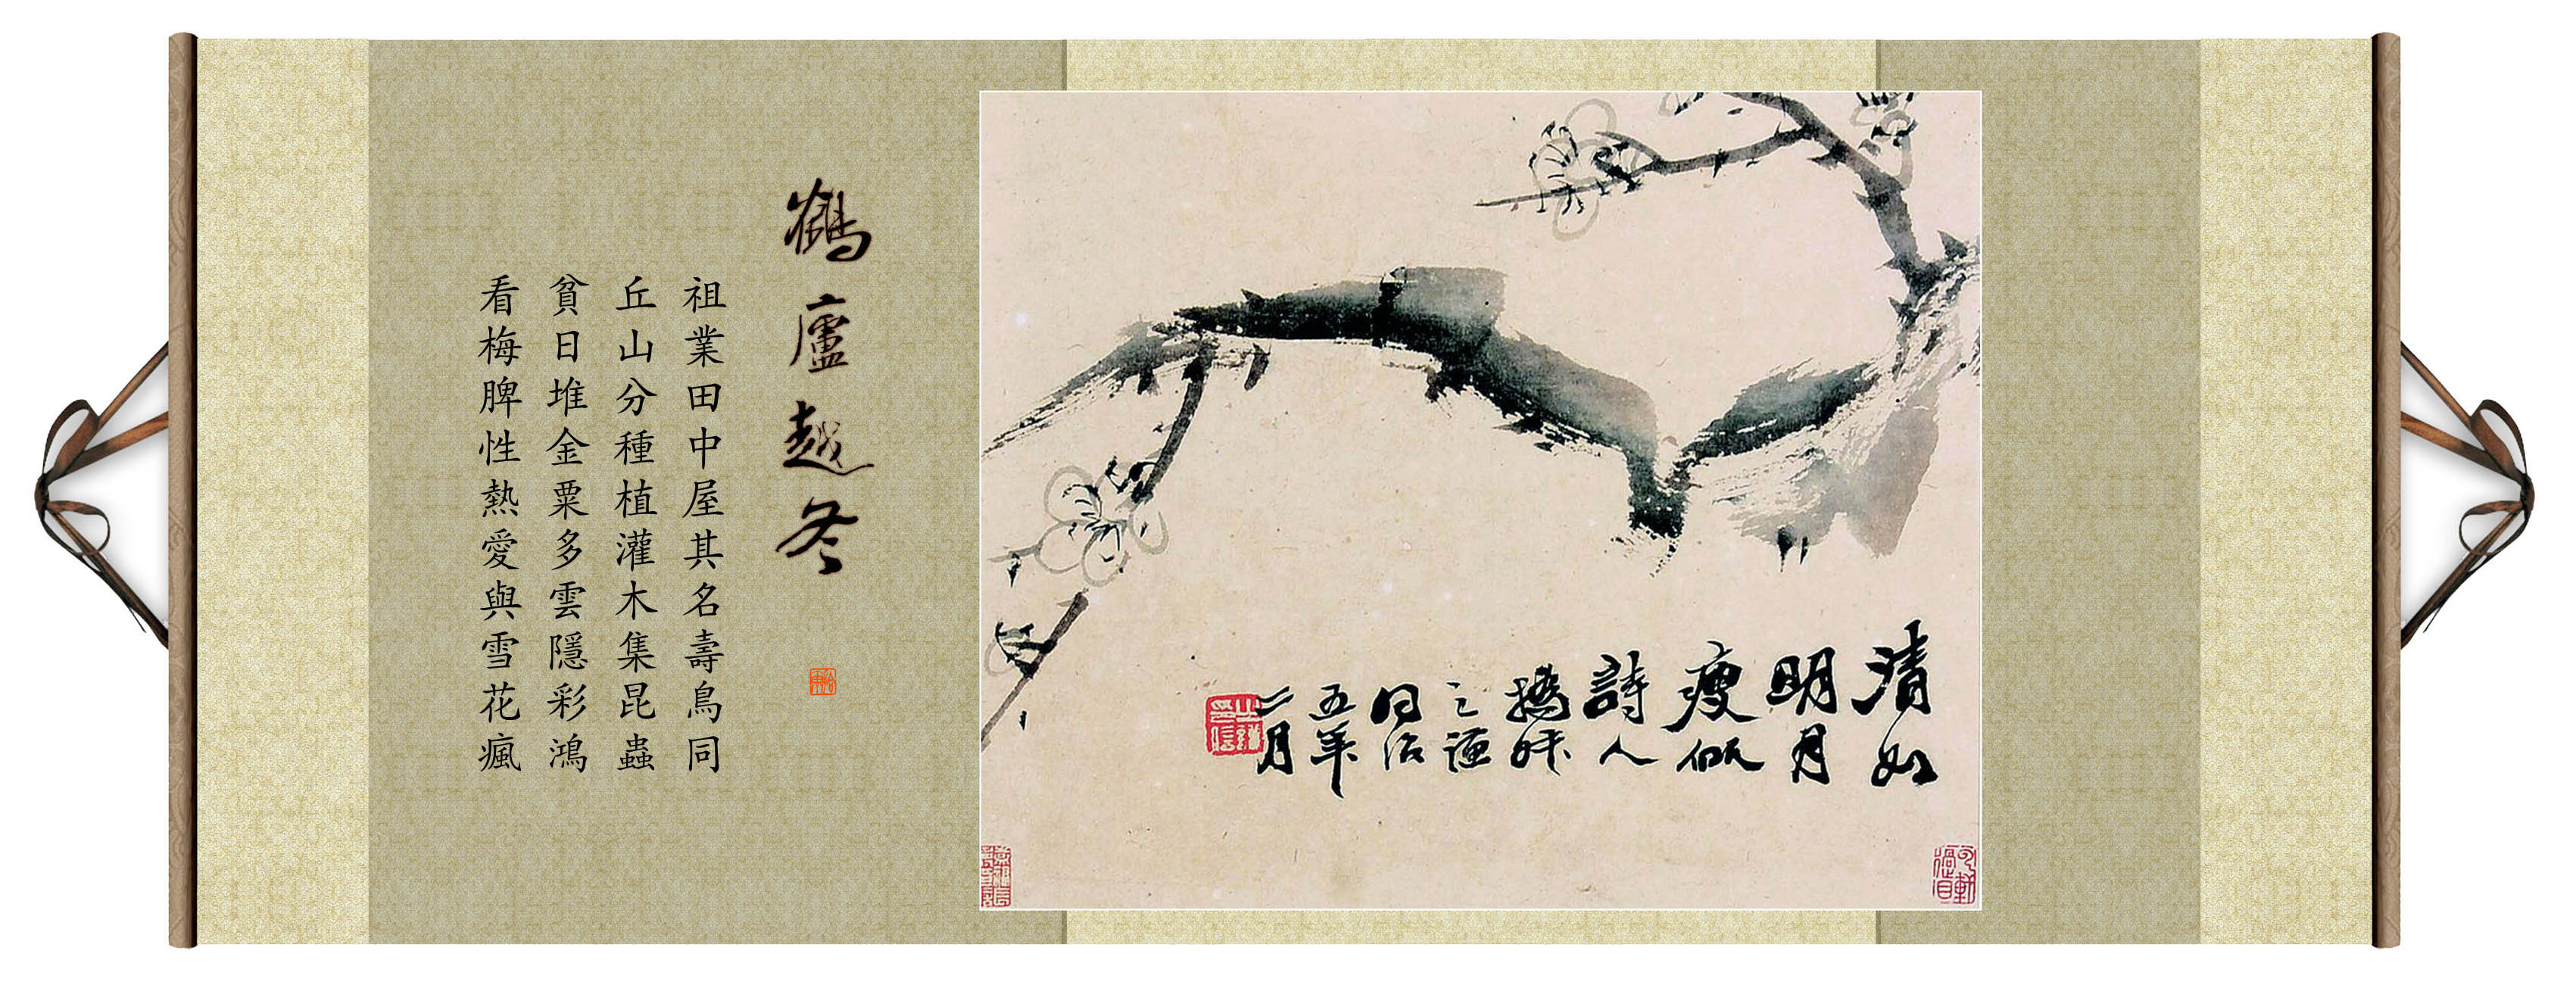 清如
明月
瘦似
詩人
撝叔
之謙
同治
五年
二月
鶴廬越冬
祖業田中屋其名壽鳥同
丘山分種植灌木集昆蟲
貧日堆金粟多雲隱彩鴻
看梅脾性熱愛與雪花瘋